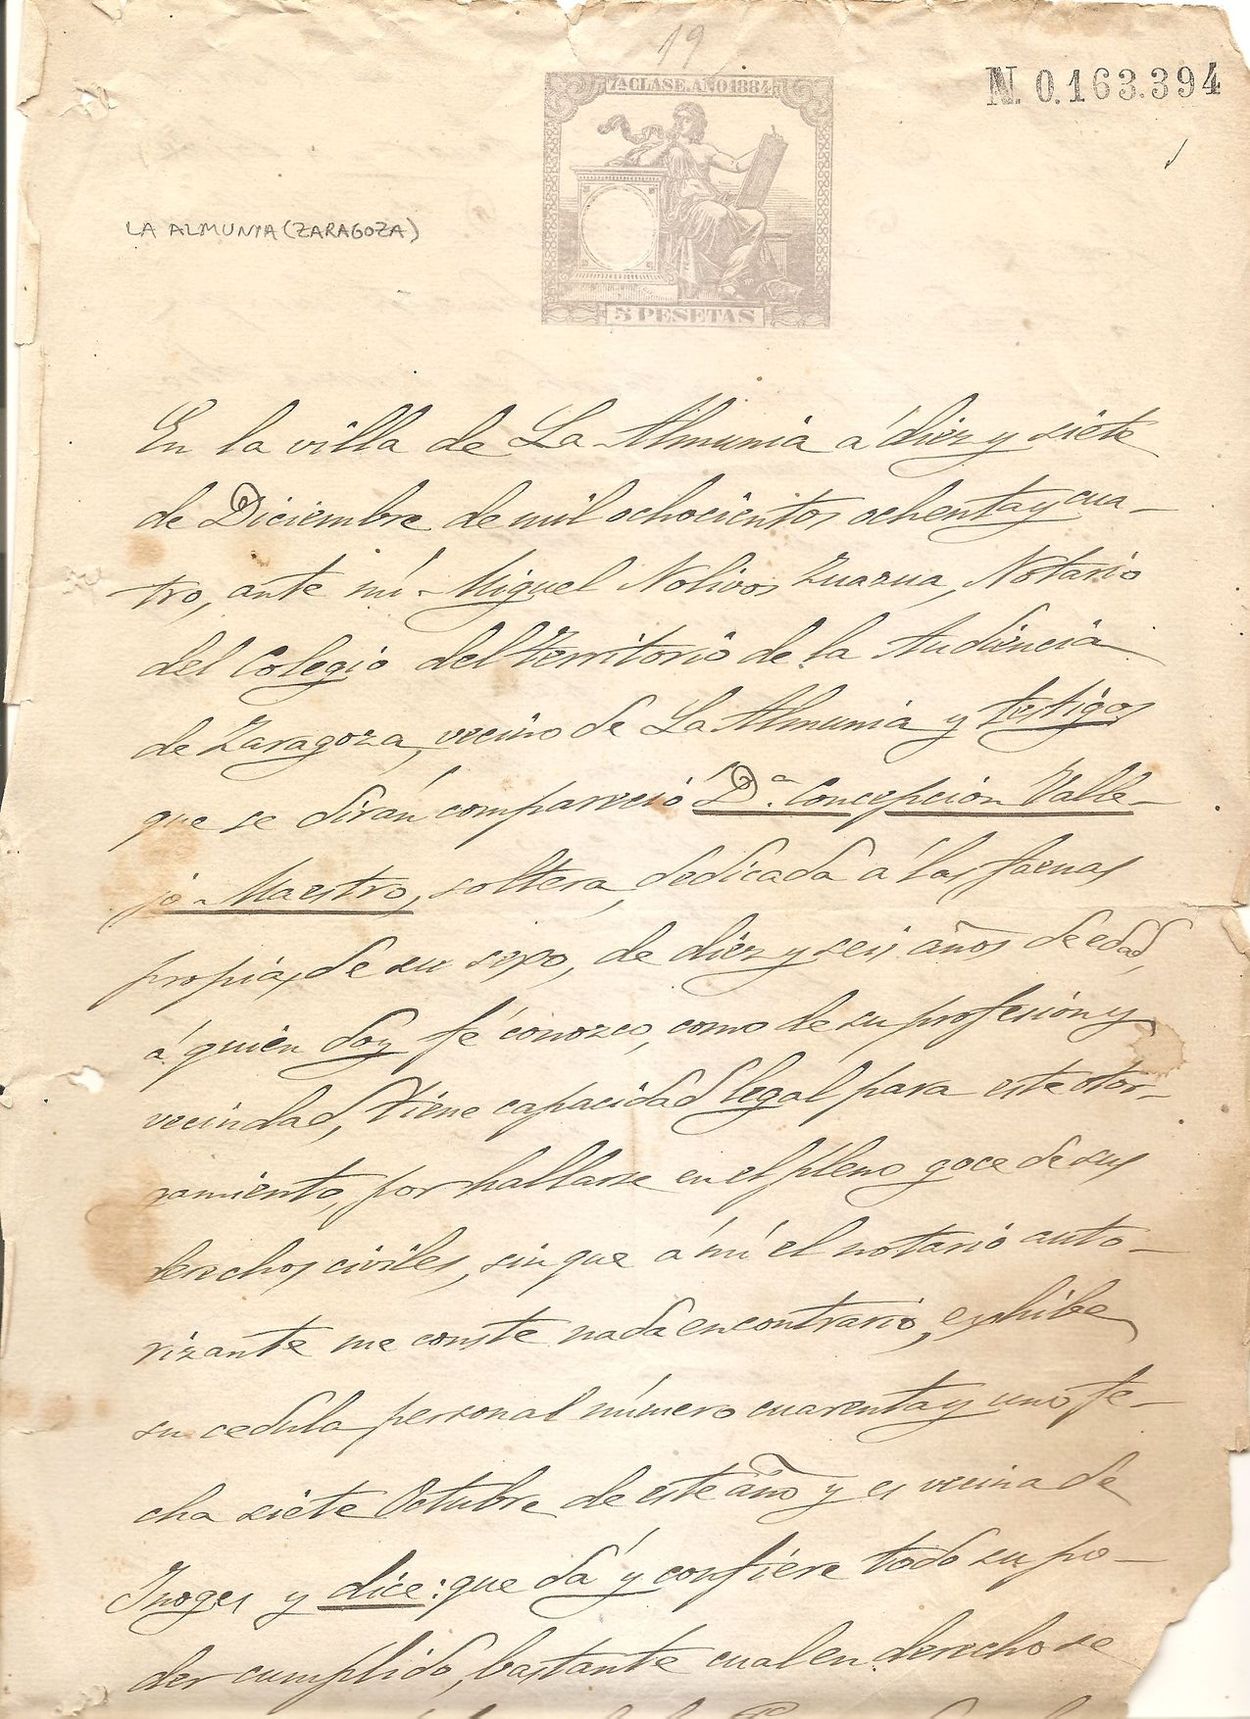 19
7ª CLASE. AÑO 1884
N. 0.163.394
LA ALMUNIA (ZARAGOZA)
5 PESETAS
En la villa de La Almunia á diez y siete
de Diciembre de mil ochocientos ochenta y cua-
tro, ante mí Miguel Nolivos Zuazua, Notario
del Colegio del Territorio de la Audiencia
de Zaragoza, vecino de La Almunia y testigos
que se dirán compareció D.ª Concepción Valle-
jo Maestro, soltera, dedicada á las faenas
propias de su sexo, de diez y seis años de edad,
á quien doy fé conozco, como de su profesión y
vecindad, tiene capacidad legal para este otor-
gamiento, por hallarse en el pleno goce de sus
derechos civiles, sin que á mí el notario auto-
rizante me conste nada en contrario, exhibe
su cedula personal número cuarenta y uno fe-
cha siete Octubre de este año y es vecina de
Inoges y dice: que dá y confiere todo su po-
der cumplido, bastante cual en derecho se